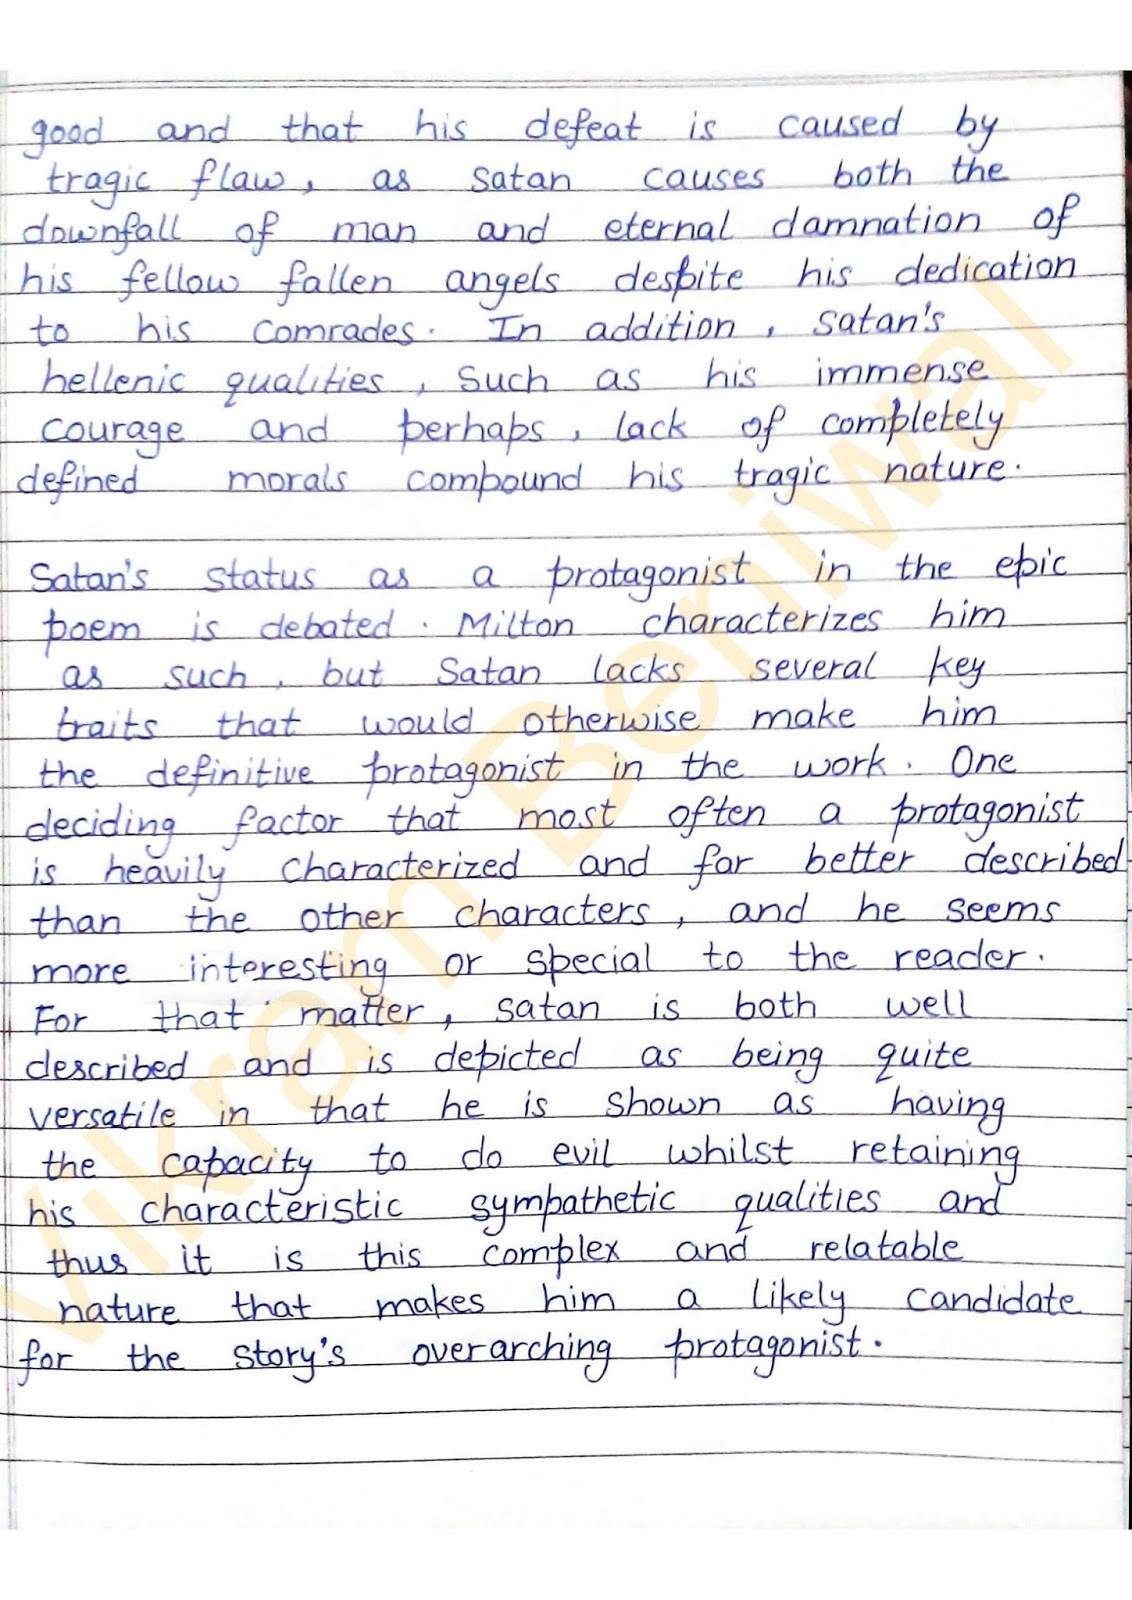 good and that his defeat is caused by
tragic flaw, as satan causes both the
downfall of man and eternal damnation of
his fellow fallen angels despite his dedication
to his comrades. In addition, satan's
hellenic qualities, such as his immense
courage and perhaps, lack of completely
defined morals compound his tragic nature.
Satan's status as a protagonist in the epic
poem is debated. Milton characterizes him
as such, but Satan lacks several key
traits that would otherwise make him
the definitive protagonist in the work. One
deciding factor that most often a protagonist
is heavily characterized and far better described
than the other characters, and he seems
more interesting or special to the reader.
For that matter, satan is both well
described and is depicted as being quite
versatile in that he is shown as having
the capacity to do evil whilst retaining
his characteristic sympathetic qualities and
thus it is this complex and relatable
nature that makes him a likely candidate
for the story's overarching protagonist.
Vikram Beniwal